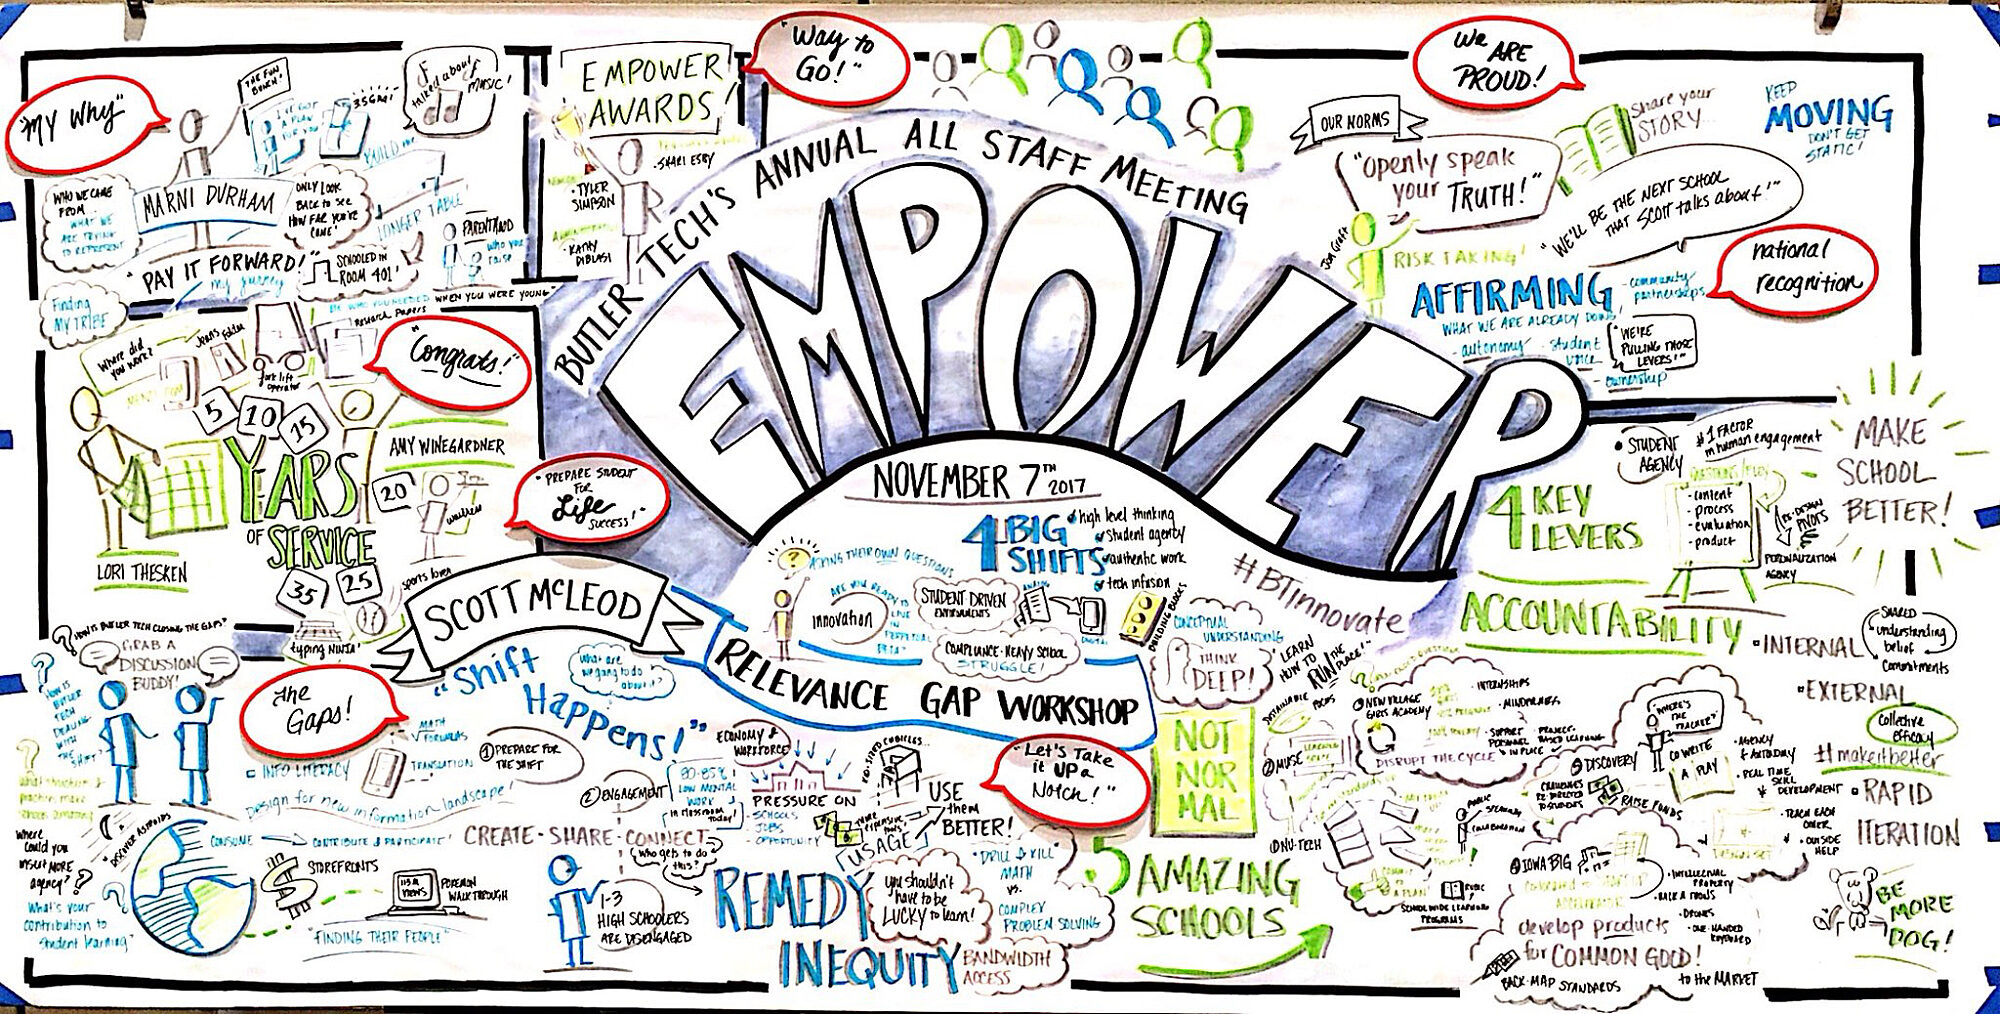 "MY Why"
THE FUN BUNCH!
I'VE GOT A PLAN FOR YOU!
talked about music!
BUILD
LONGER TABLE
WHO WE CAME FROM...
WHAT WE ARE TRYING TO REPRESENT
MARNI DURHAM
ONLY LOOK BACK TO SEE HOW FAR YOU'VE CAME!
PARENTHOOD
who you raise
"PAY IT FORWARD!"
my journey
SCHOOLED IN ROOM 401!
Finding MY TRIBE
WHO YOU NEEDED WHEN YOU WERE YOUNG"
EMPOWER AWARDS!
SHARI ESBY
• TYLER SIMPSON
• KATHY DIBLASI
"Way to Go!"
BUTLER TECH'S ANNUAL ALL STAFF MEETING
EMPOWER
NOVEMBER 7TH 2017
We ARE PROUD!
OUR NORMS
"Openly speak your TRUTH!"
Share your STORY
KEEP MOVING
DON'T GET STATIC!
"WE'LL BE THE NEXT SCHOOL THAT SCOTT talks about!"
Jon Graft
RISK TAKING!
AFFIRMING
WHAT WE ARE ALREADY DOING!
- community partnerships
- autonomy
- student voice
- ownership
"WE'RE PULLING THOSE LEVERS!"
national recognition
Where did you work?
Jeans Folder
fork lift operator
Research Papers
"Congrats!"
5
10
15
20
25
35
YEARS OF SERVICE
AMY WINEGARDNER
waitress
LORI THESKEN
typing NINJA!
"PREPARE STUDENT FOR Life SUCCESS!"
SCOTT McLEOD
RELEVANCE GAP WORKSHOP
4 BIG SHIFTS
high level thinking
student agency
authentic work
tech infusion
ASKING THEIR OWN QUESTIONS
innovation
ARE YOU READY TO LIVE IN PERPETUAL BETA"
STUDENT DRIVEN ENVIRONMENTS
COMPLIANCE-HEAVY SCHOOL STRUGGLE!
ANALOG
DIGITAL
BUILDING BLOCKS
CONCEPTUAL UNDERSTANDING
THINK DEEP!
#BTinnovate
"LEARN HOW TO RUN THE PLACE!"
4 KEY LEVERS
• STUDENT AGENCY
#1 FACTOR in human engagement
- content
- process
- evaluation
- product
PERSONALIZATION AGENCY
MAKE SCHOOL BETTER!
ACCOUNTABILITY
• INTERNAL
SHARED understanding belief Commitments
• EXTERNAL
Collective efficacy
#makeitbetter
• RAPID ITERATION
BE MORE DOG!
HOW IS BUTLER TECH CLOSING THE GAPS?"
GRAB A DISCUSSION BUDDY!
HOW IS BUTLER TECH DEALING WITH THE SHIFT?
the Gaps!
"Shift Happens!"
What are we going to do about it?
MATH FORMULAS
TRANSLATION
INFO LITERACY
① PREPARE FOR THE SHIFT
Design for new information landscape!
Where could you insert MORE agency?
What's your contribution to student learning"
DISCOVER ASTEROIDS
CONSUME
CONTRIBUTE & PARTICIPATE!
STOREFRONTS
POKEMON WALKTHROUGH
"FINDING THEIR PEOPLE"
CREATE-SHARE-CONNECT
② ENGAGEMENT
80-85% LOW MENTAL WORK in classroom today!
Who gets to do this?
1-3 HIGH SCHOOLERS ARE DISENGAGED
ECONOMY & WORKFORCE
PRESSURE ON
- SCHOOLS
- JOBS
- OPPORTUNITY
USE them BETTER!
USAGE
"Let's Take it UP a Notch!"
REMEDY INEQUITY
you shouldn't have to be LUCKY to learn!
"DRILL & KILL" MATH
VS.
COMPLEX PROBLEM SOLVING
BANDWIDTH ACCESS
NOT NORMAL
5 AMAZING SCHOOLS
SUSTAINABLE FOCUS
② MUSE
① NU-TECH
NEW VILLAGE GIRLS ACADEMY
• INTERNSHIPS
• MINDFULNESS
• SUPPORT PERSONNEL IN PLACE
• PROJECT-BASED LEARNING
DISRUPT THE CYCLE
PUBLIC SPEAKING
COLLABORATION
SCHOOLWIDE LEARNING PROGRAMS
DISCOVERY
"WHERE'S THE TEACHER?"
CO WRITE A PLAY
• AGENCY & AUTONOMY
• REAL TIME SKILL DEVELOPMENT
• TEACH EACH OTHER
• OUTSIDE HELP
CHALLENGES RE-DIRECTED TO STUDENTS
RAISE FUNDS
IOWA BIG
• INTELLECTUAL PROPERTY
• DRONES
• ONE-HANDED KEYBOARD
develop products for COMMON GOOD!
to the MARKET
BACK-MAP STANDARDS